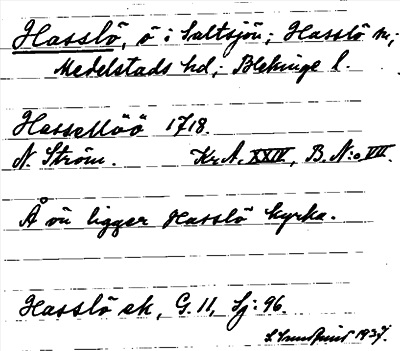 Hasslö, ö i Saltsjön; Hasslö sn;
Medelstads hd; Blekinge l.
Hassellöö 1718.
N Ström. Kr.A. XXIV, B. N:o VII.
Å ön ligger Hasslö kyrka.
Hasslö ek, G. 11, Sj: 96.
1937.